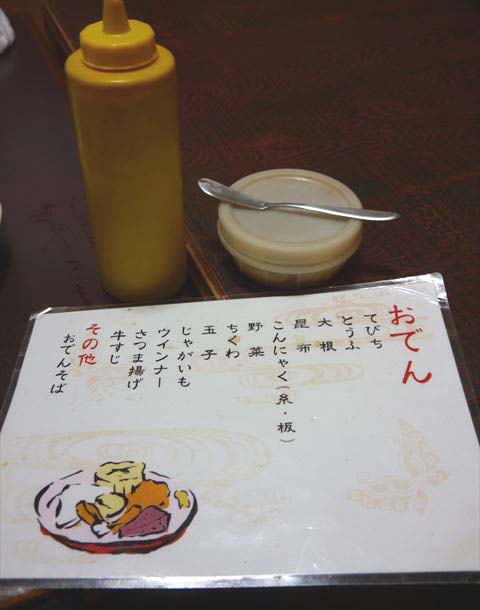 おでん
てびち
とうふ
大根
昆布
こんにゃく(糸・板)
野菜
ちくわ
玉子
じゃがいも
ウインナー
さつま揚げ
牛すじ
その他
おでんそば